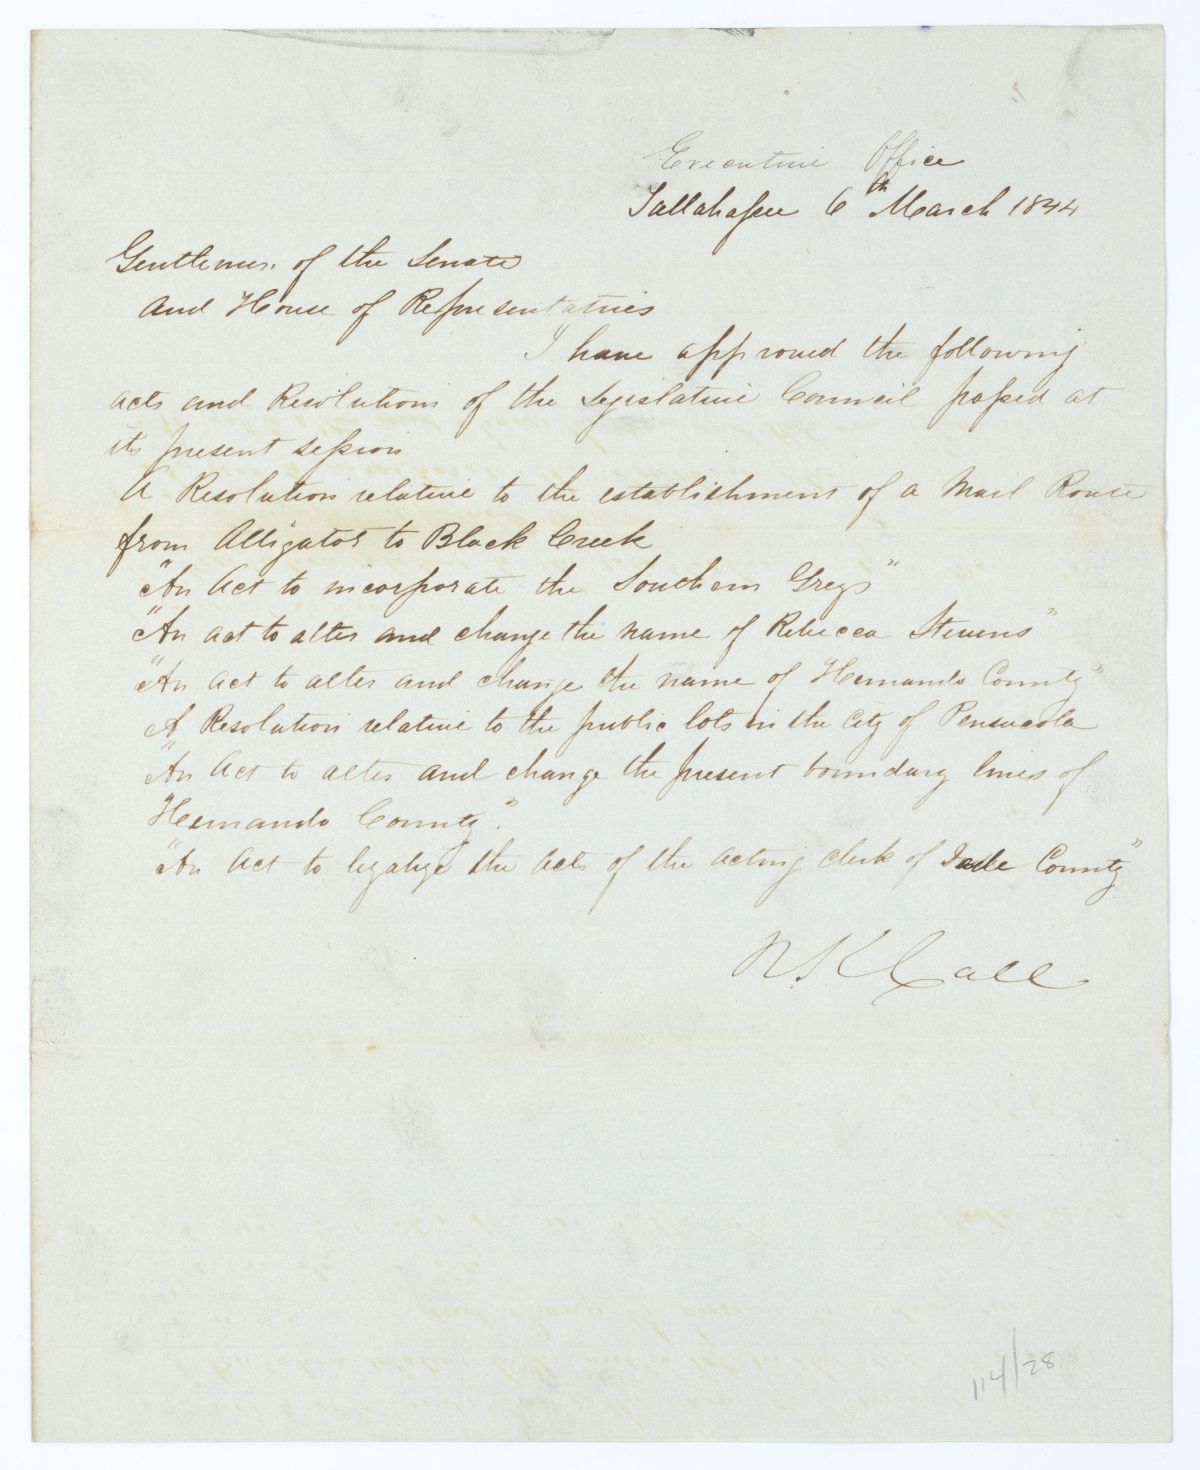 Executive Office
Tallahassee 6th March 1844
Gentlemen of the Senate
and House of Representatives
I have approved the following
acts and Resolutions of the Legislative Council passed at
its present session
A Resolution relative to the establishment of a Mail Route
from Alligator to Black Creek
"An Act to incorporate the Southern Greys"
"An act to alter and change the name of Rebecca Stevens"
"An act to alter and change the name of Hernando County"
A Resolution relative to the public lots in the City of Pensacola
"An Act to alter and change the present boundary lines of
Hernando County".
"An Act to legalize the acts of the acting clerk of Dade County"
R. K. Call
114/28